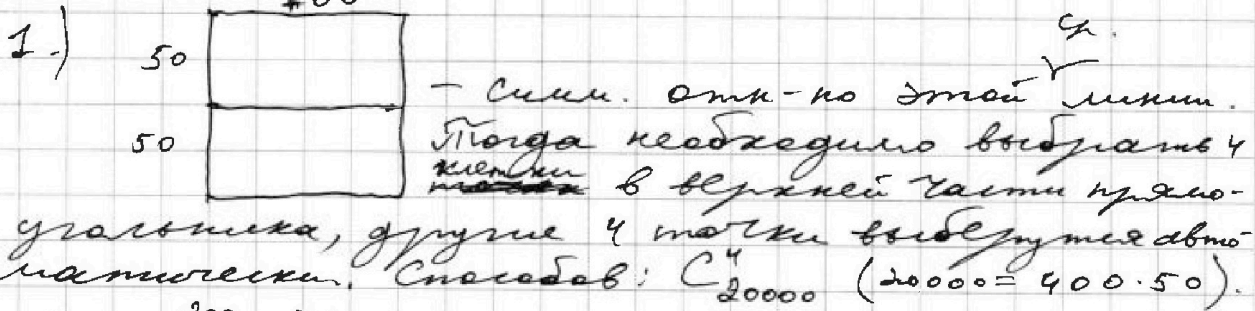 400
1.) 50
ср.
- симм. отн-но этой линии.
50 Тогда необходимо выбрать 4
клетки
в верхней части прямо-
угольника, другие 4 точки выберутся авто-
матически. Способов: C⁴₂₀₀₀₀ (20000 = 400·50).